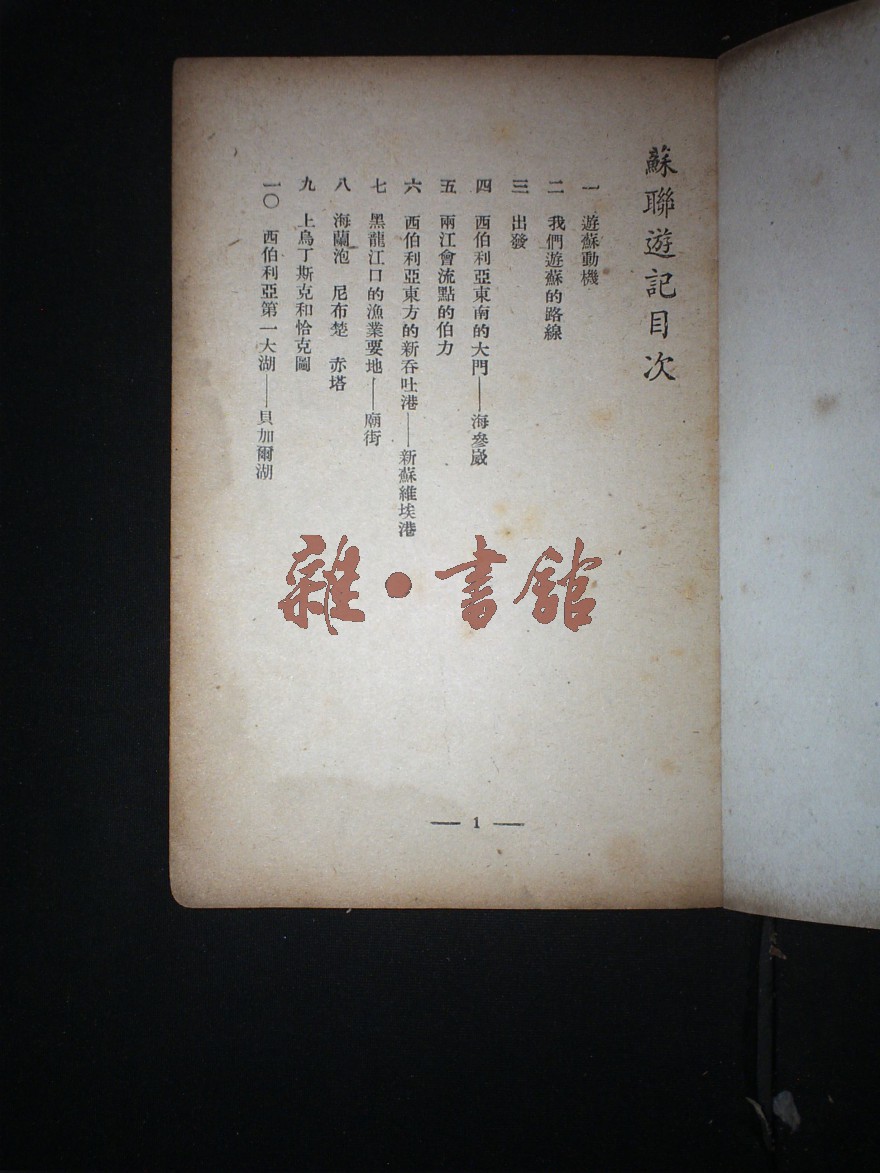 蘇聯遊記目次
一　遊蘇動機
二　我們遊蘇的路線
三　出發
四　西伯利亞東南的大門——海參崴
五　兩江會流點的伯力
六　西伯利亞東方的新吞吐港——新蘇維埃港
七　黑龍江口的漁業要地——廟街
八　海蘭泡　尼布楚　赤塔
九　上烏丁斯克和恰克圖
一〇　西伯利亞第一大湖——貝加爾湖
雜·書館
— 1 —